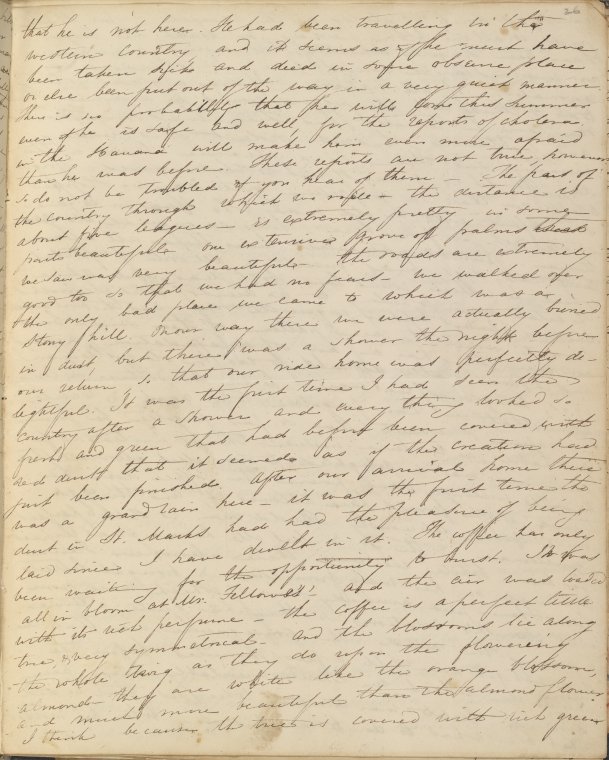 26
that he is not here. He had been travelling in the
western country and it seems as if he must have
been taken sick and died in some obscure place
or else been put out of the way in a very quiet manner.
There is no probability that he will come this summer
even if he is safe and well, for the reports of cholera
in the Havana will make him even more afraid
than he was before. These reports are not true, however
so do not be troubled if you hear of them — The part of
the country through which we rode — the distance is
about five leagues — is extremely pretty in some
parts beautiful — one extensive grove of palms that
we saw was very beautiful — the roads are extremely
good too so that we had no fears — we walked over
the only bad place we came to which was a
stony hill. In our way there we were actually buried
in dust, but there was a shower the night before
our return so that our ride home was perfectly de-
lightful. It was the first time I had seen the
country after a shower and every thing looked so
fresh and green that had before been covered with
red dust that it seemed as if the creation had
just been finished. After our arrival home there
was a grand rain here — it was the first time the
dust in St. Marks had had the pleasure of being
laid since I have dwelt in it. The coffee has only
been waiting for the opportunity to burst. It was
all in bloom at Mr. Fellowes — and the air was loaded
with its rich perfume — the coffee is a perfect little
tree, very symmetrical and the blossoms lie along
the whole twig as they do upon the flowering
almond — they are white like the orange blossom,
and much more beautiful than the almond flower
I think because the tree is covered with rich green